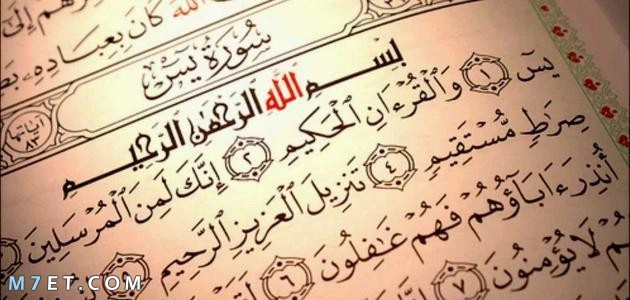 رهم إلى
ٱللَّهَ كَانَ بِعِبَادِهِۦ
سُورَةُ يسٓ
آياتها ٨٣
بِسْمِ ٱللَّهِ ٱلرَّحْمَٰنِ ٱلرَّحِيمِ
يسٓ ١ وَٱلْقُرْءَانِ ٱلْحَكِيمِ ٢ إِنَّكَ لَمِنَ ٱلْمُرْسَلِينَ
صِرَٰطٍ مُّسْتَقِيمٍ ٤ تَنزِيلَ ٱلْعَزِيزِ ٱلرَّحِيمِ
أُنذِرَ ءَابَآؤُهُمْ فَهُمْ غَٰفِلُونَ ٦
لَا يُؤْمِنُونَ ٧
M7ET.COM